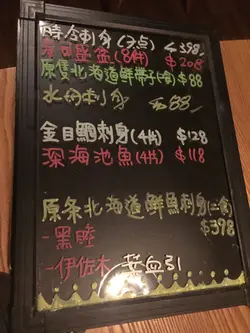 時令刺身(3点) $398
壽司盛盆(8件) $208
原隻北海道鮮帶子(1隻) $88
水蛸刺身 $88
金目鯛刺身(4片) $128
深海池魚(4片) $118
原条北海道鮮魚刺身(二食)
$398
-黑睦
-伊佐木